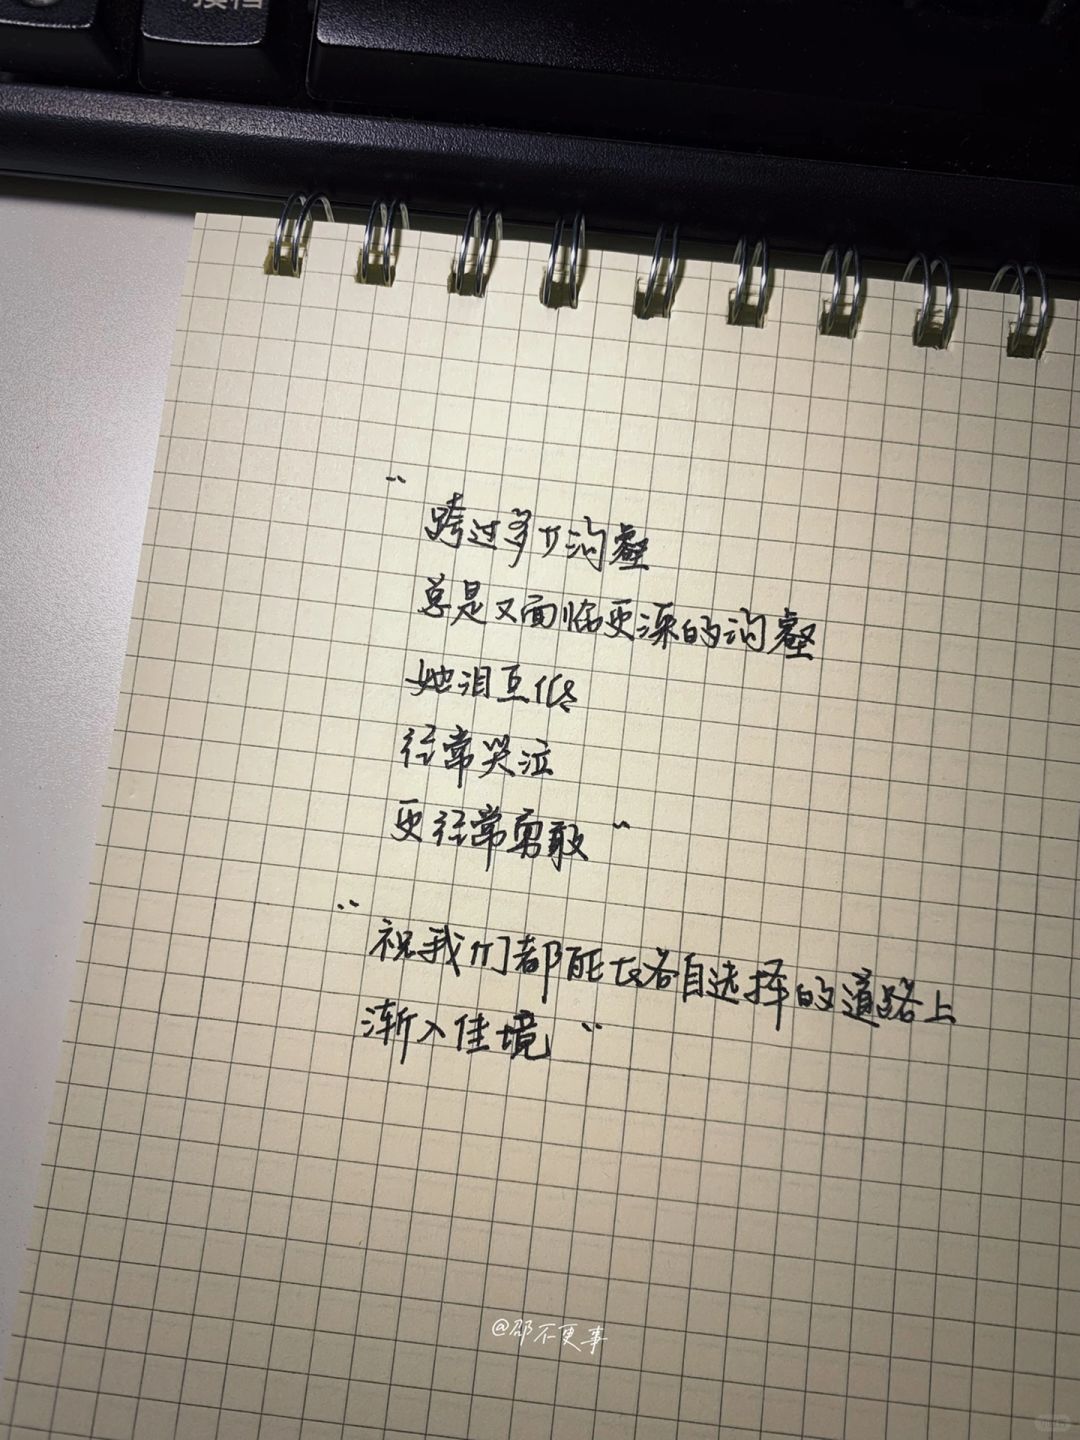 “跨过多个沟壑
总是又面临更深的沟壑
她泪
经常哭泣
更经常勇敢”
“祝我们都能在各自选择的道路上
渐入佳境”
@邵不更事